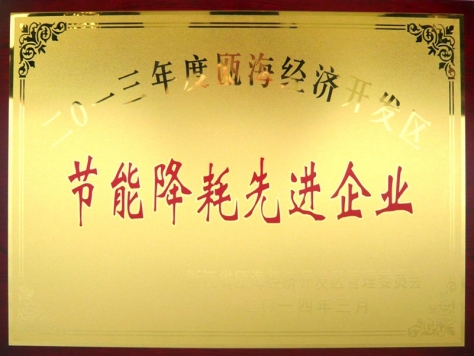 二〇一三年度瓯海经济开发区
节能降耗先进企业
经济开发区管理委员会
二〇一四年三月